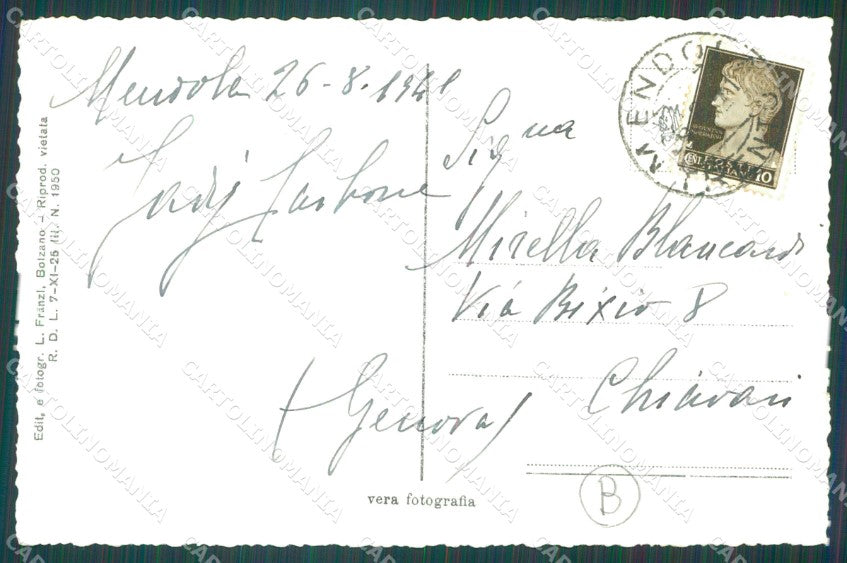 Mendola 26-8.1941
Carbone
Sig.na
Mirella Blancardi
Via Bixio 8
Chiavari
(Genova)
vera fotografia
Edit. e fotogr. L. Fränzl, Bolzano — Riprod. vietata
R. D. L. 7-XI-25 III. N. 1950
B
MENDOL
10
CARTOLINOMANIA